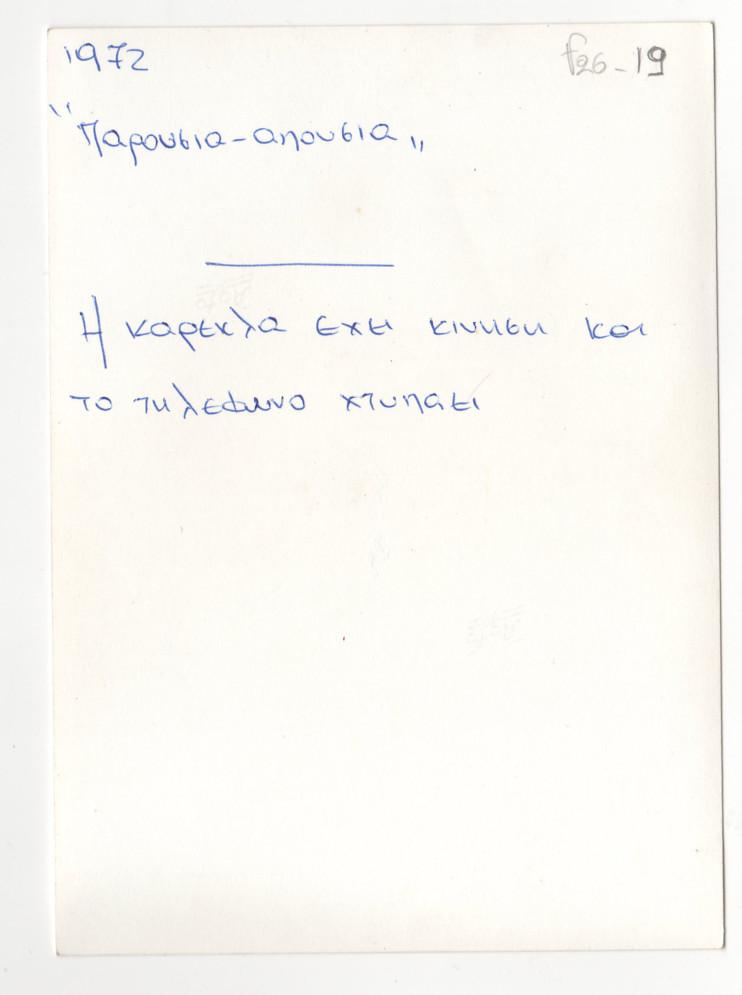 1972 f26-19
"Παρουσια-απουσια„
Η καρεκλα εχει κινηση και
το τηλεφωνο χτυπαει